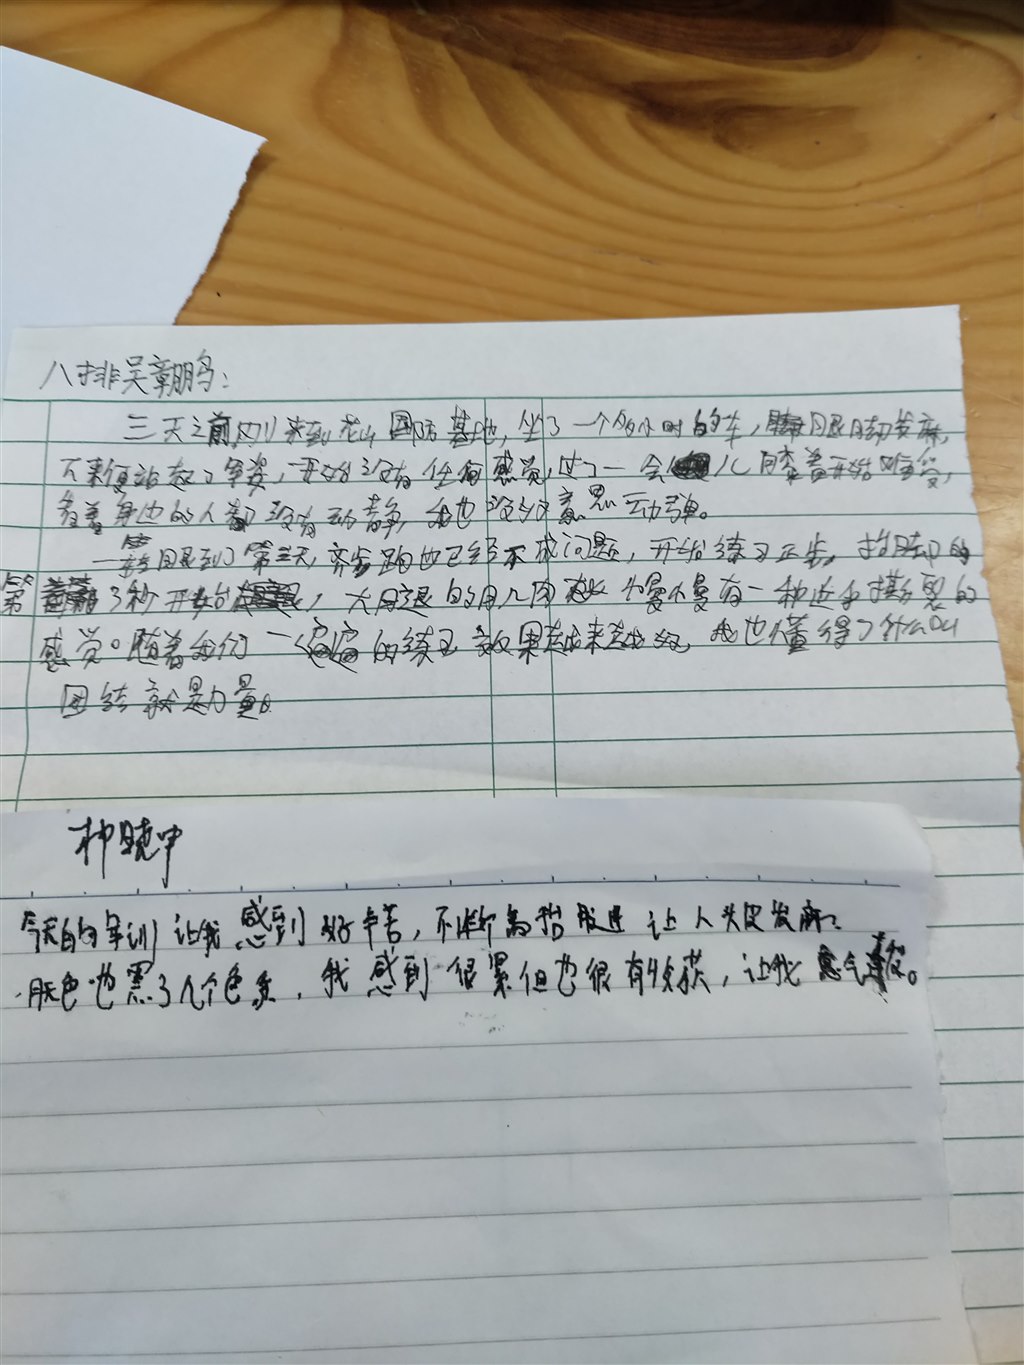 八排吴章鹏：
三天之前刚来到花山国防基地，坐了一个多小时的车，腿脚发麻，
下来便站起了军姿，开始没有任何感觉，过了一会儿膝盖开始难受，
看着身边的人都没有动静，我也没好意思动弹。
一转眼到了第三天，齐步跑也已经不成问题，开始练习正步。抬脚的
第3秒开始，大腿的肌肉就慢慢有一种近乎撕裂的
感觉。随着我们一遍遍的练习效果越来越好，我也懂得了什么叫
团结就是力量。
今天的军训让我感到好辛苦，不断高抬腿进让人头皮发麻，
肤色也黑了几个色度，我感到很累但也很有收获，让我意气。